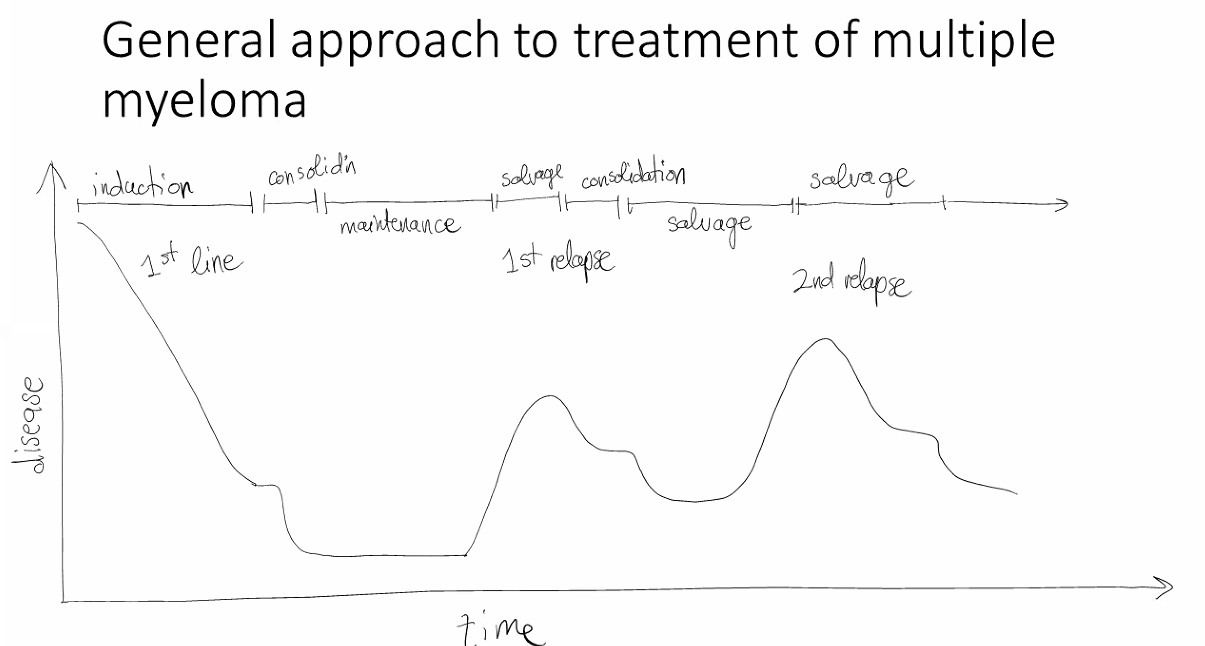 General approach to treatment of multiple
myeloma
induction
consolid'n
maintenance
salvage
consolidation
salvage
salvage
1st line
1st relapse
2nd relapse
disease
time